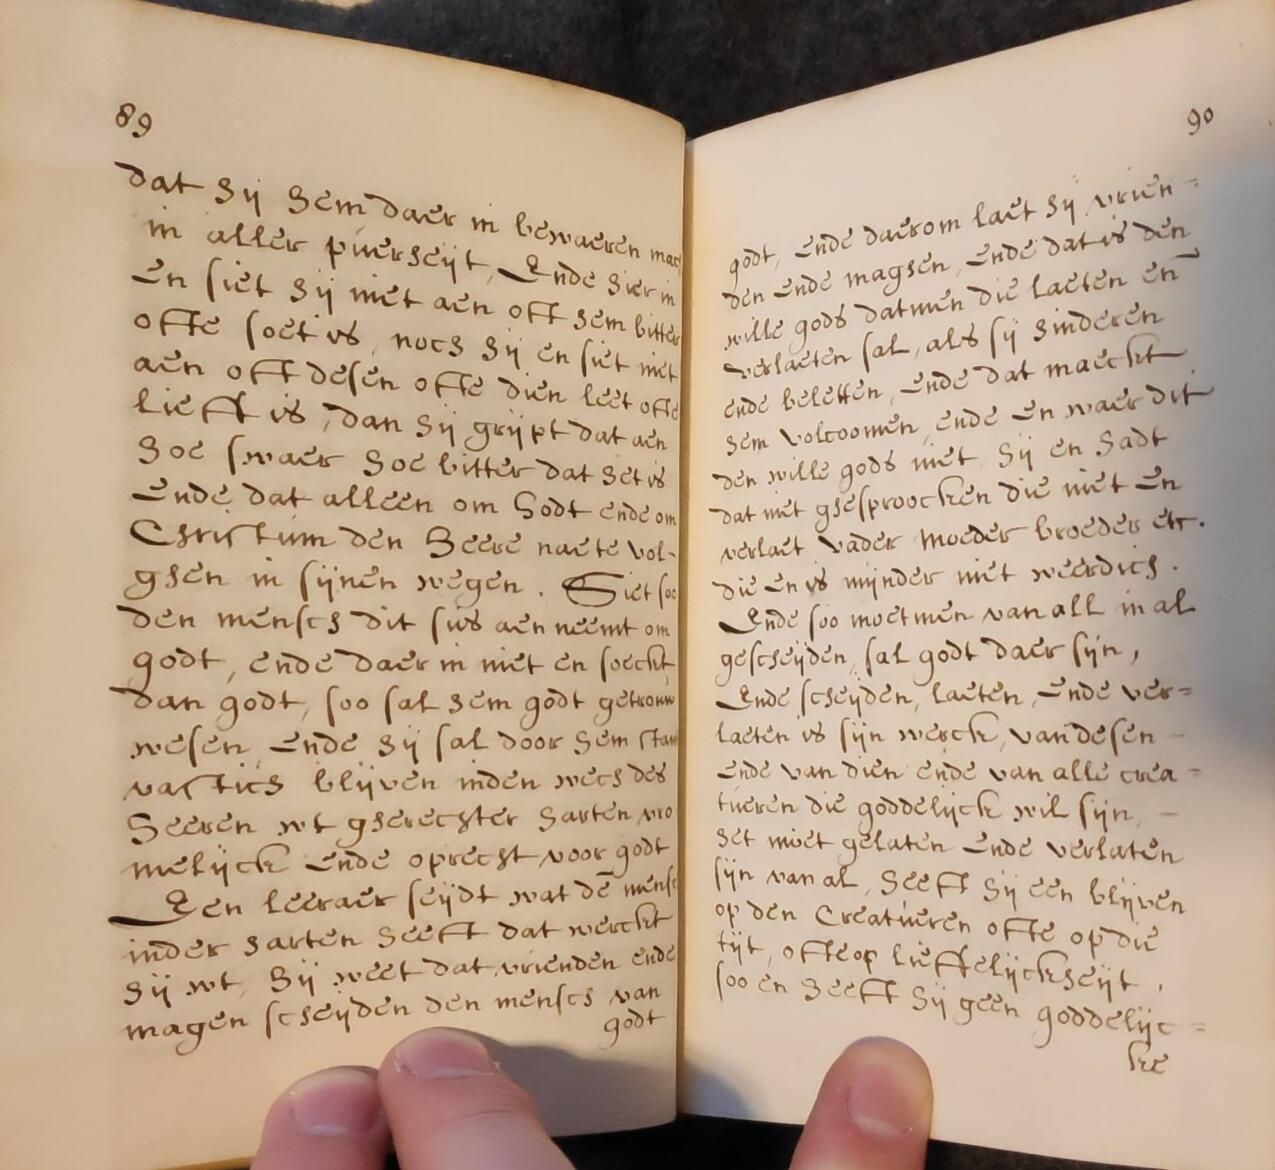 89
dat hij hem daer in bewaeren mach
in aller puerheijt, Ende hier in
en siet hij niet aen oft hem bitter
ofte soet is, noch hij en siet niet
aen oft desen ofte dien leet ofte
lieft is, dan hij grijpt dat aen
hoe swaer hoe bitter dat het is
Ende dat alleen om Godt ende om
Christum den Heere naete vol-
ghen in sijnen wegen. Siet soo
den mensch dit sus aen neemt om
godt, ende daer in niet en soeckt
dan godt, soo sal hem godt getrouw
wesen, Ende hij sal door hem stant
vastich blijven inden wech des
Heeren wt gherechter harten vro
melijck Ende oprecht voor godt
Een leeraer seijdt wat dē mensch
inder harten heeft dat werckt
hij wt, hij weet dat vrienden ende
magen scheijden den mensch van
godt
90
godt, Ende daerom laet hij vrien=
den Ende maghen, Ende dat is den
wille gods datmen die laeten en̄
verlaeten sal, als sij hinderen
ende beletten, Ende dat maeckt
hem volcoomen, ende En waer dit
den wille gods niet, hij en hadt
dat niet ghesproocken die niet En
verlaet vader moeder broeder etc.
die En is mijnder niet weerdich.
Ende soo moetmen van all in al
gescheijden, sal godt daer sijn,
Ende scheijden, laeten, Ende ver=
laeten is sijn werck, van desen -
Ende van dien ende van alle crea=
tueren die goddelijck wil sijn, -
het moet gelaten Ende verlaten
sijn van al, heeft hij een blijven
op den Creatueren ofte op die
tijt, ofte op lieffelijckheijt,
soo en heeft hij geen goddelijc=
ke